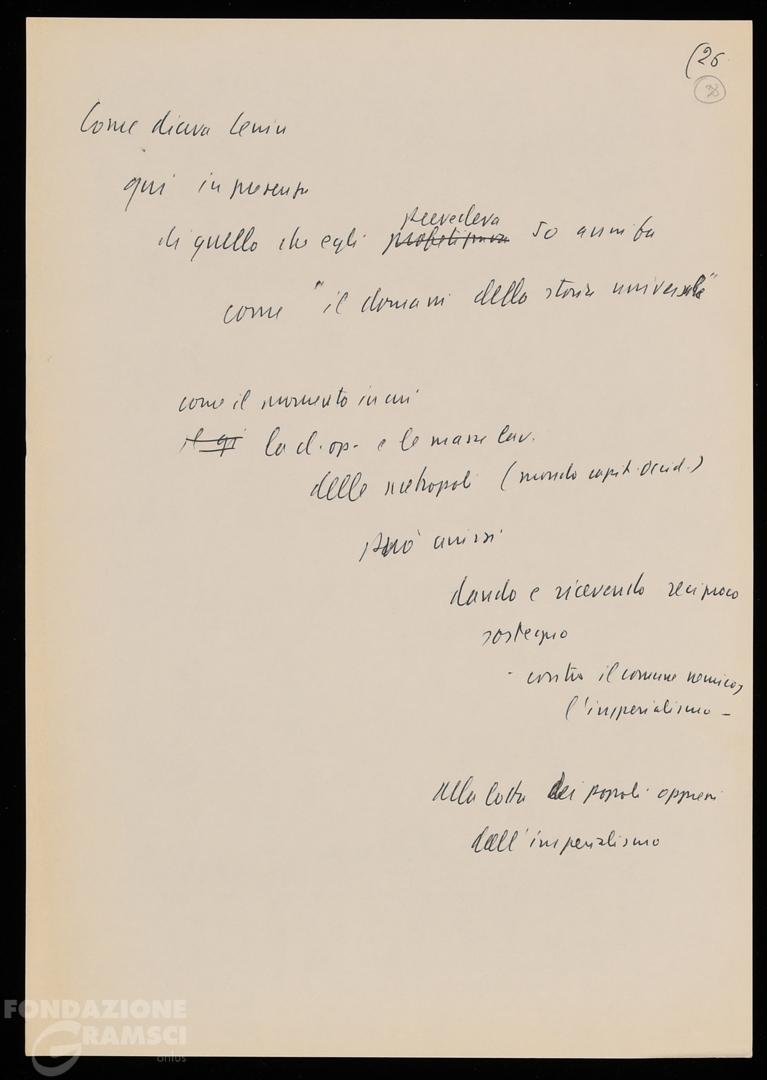 (26
38
Come diceva Lenin
qui in presenza
di quello che egli prevedeva 50 anni fa
come "il domani della storia universale"
come il momento in cui
il qi la cl. op. e le masse lav.
delle metropoli (mondo capit. occid.)
può unirsi
dando e ricevendo reciproco
sostegno
- contro il comune nemico,
l'imperialismo -
alla lotta dei popoli oppressi
dall'imperialismo
FONDAZIONE
GRAMSCI
onlus